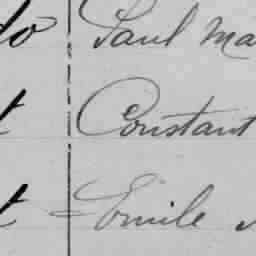 do Paul Ma
t Constant
t Emile